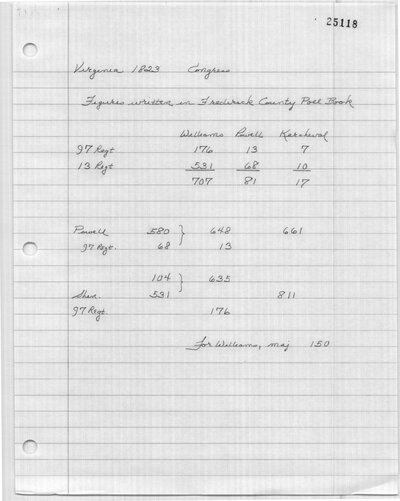 25118
Virginia 1823 Congress
Figures written in Frederick County Poll Book
Williams Powell Kercheval
97 Regt 176 13 7
13 Regt 531 68 10
707 81 17
Powell 580 } 648 661
97 Regt. 68 13
104 } 635
Shen. 531 811
97 Regt. 176
For Williams, maj 150